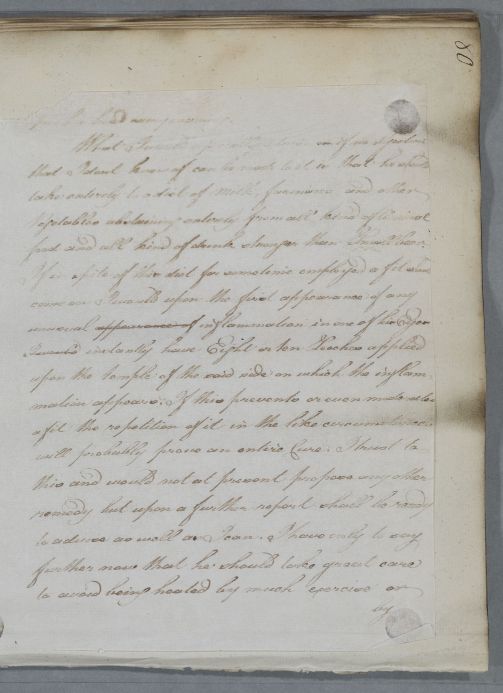 80
What I would
that I dont know of can be made to it is that he should
take entirely to a diet of milk farinacea and other
Vegetables abstaining entirely from all kind of animal
food and all kind of drink stronger than Small beer.
If in spite of this diet for sometime employed a fit should
come on I would upon the first appearance of any
unusual appearance of inflammation in one of his Eyes
I would instantly have Eight or ten Leeches applied
upon the temple of the said side on which the inflam-
mation appears. If this prevents or even moderates
a fit the repetition of it in the like circumstances
will probably prove an entire Cure. I trust to
this and would not at present propose any other
remedy but upon a further report shall be ready
to advise as well as I can. I have only to say
further now that he should take great care
to avoid being heated by much exercise or
by